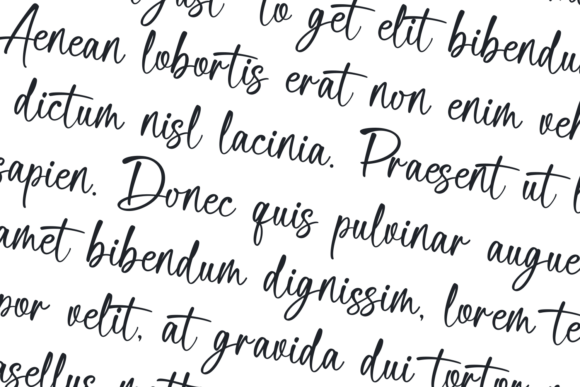 to get elit bibendu
Aenean lobortis erat non enim veh
dictum nisl lacinia. Praesent ut
sapien. Donec quis pulvinar augue
amet bibendum dignissim, lorem te
por velit, at gravida dui tortor
asellus